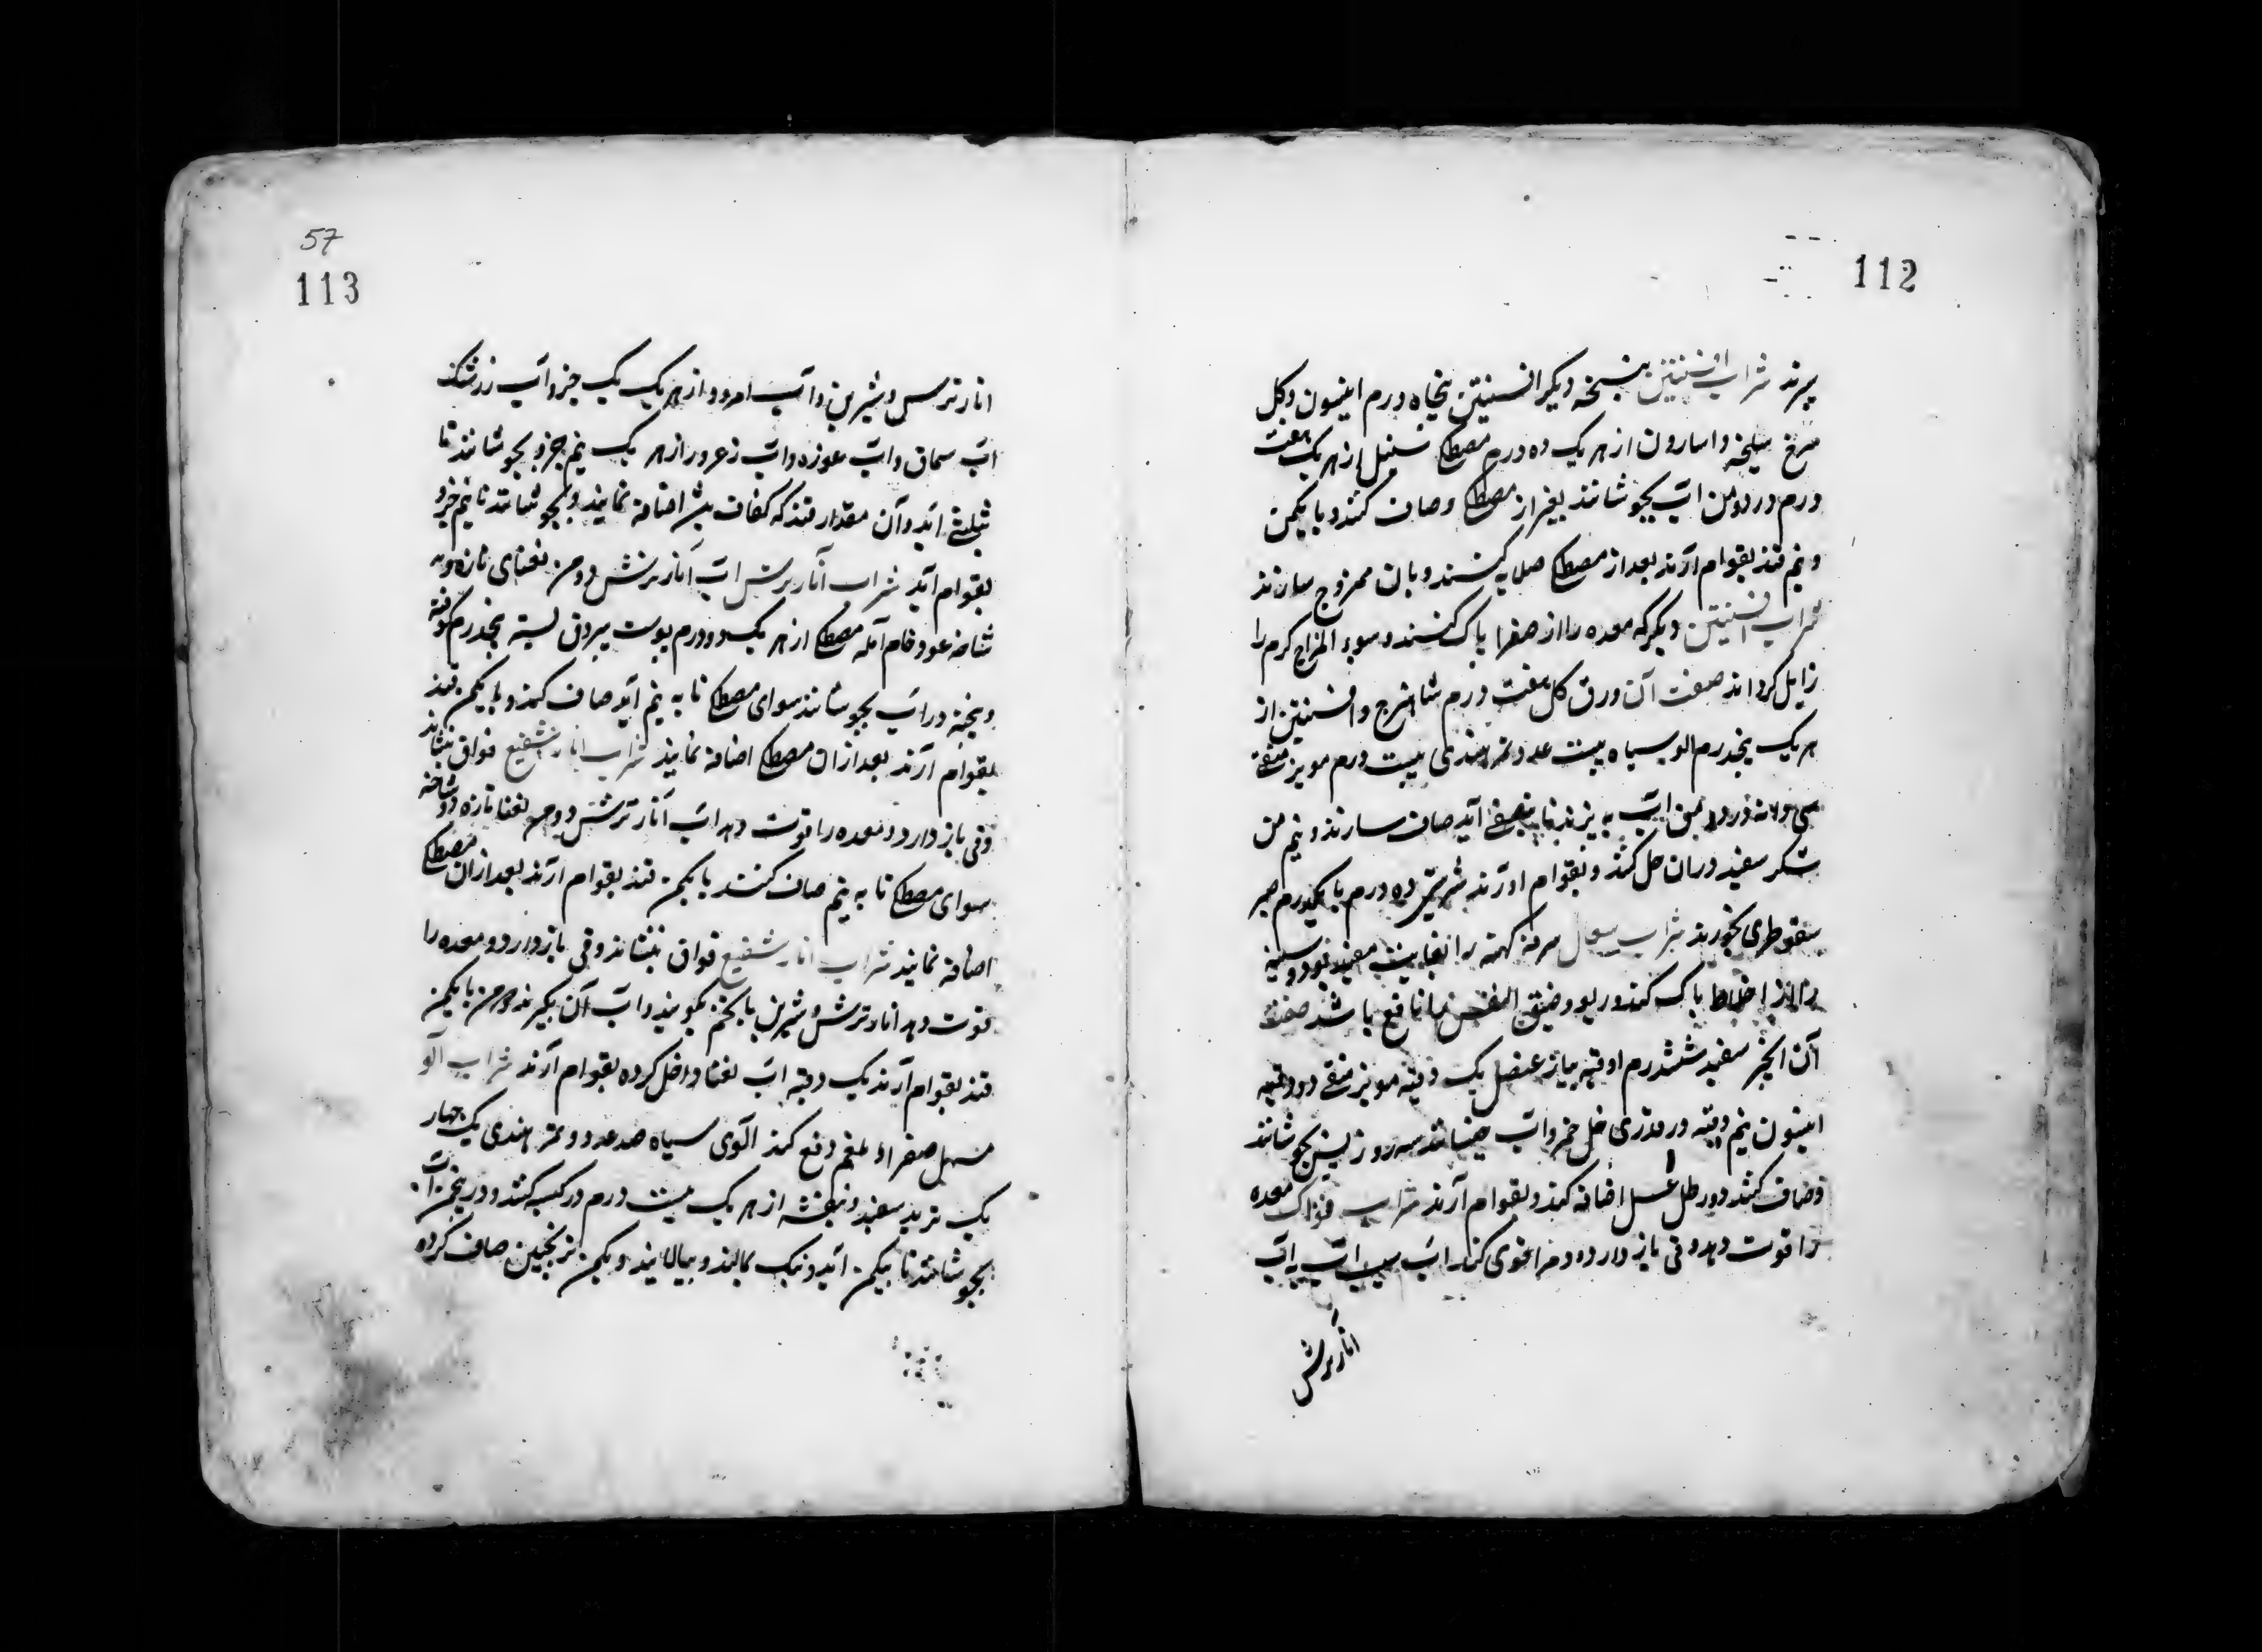 112
پرند شراب افسنتین بنسخه دیگر افسنتین پنجاه درم انیسون و گل
سرخ سلیخه و اسارون از هر یک ده درم مصطکی سنبل از هر یک هفت
درم در دو من آب بجوشانند بغیر از مصطکی و صاف کنند و با یکمن
و نیم قند بقوام آرند بعد از مصطکی صلایه کنند و بان ممزوج سازند
شراب افسنتین دیگر که معده را از صفرا پاک کنند و سوء المزاج گرم را
زایل گرداند صفت آن ورق گل هفت درم شاهترج و افسنتین از
هر یک پنجدرم الو سیاه بیست عدد تمر هندی بیست درم مویز منقی
سی آب به پزند تا بنصف آید صاف سازند و نیم من
شکر سفید دران حل کنند و بقوام اورند شربتی ده درم با یکدرم صبر
سقوطری بخورند شراب سعال سرفه کهنه را بغایت مفید بود و سینه
را از اخلاط پاک کند و ربو و ضیق النفس را نافع باشد صفت
آن انجیر سفید ششدرم اوقیه پیاز عنصل یک وقیه مویز منقی دو وقیه
انیسون نیم وقیه در قدری خل خمر و آب خیسانند سه روز پس بجوشانند
و صاف کنند دو رطل عسل اضافه کنند و بقوام آرند شراب فواکه معده
را قوت دهد و قی باز دارد و دم را قوی کند آب سیب آب به آب
انار ترش
57
113
انار ترس و شیرین و آب امرود از هر یک یک جزو آب زرشک
آب سماق و آب غوره و آب زعرور از هر یک نیم جزو بجوشانند تا
بثلثی آید و آن مقدار قند که کفاف بین اضافه نمایند و بجوشانند تا نیم جزو
بقوام آید شراب انار ترش آب انار ترش دو من نعنای تازه ده
شاخه عود خام آمله مصطکی از هر یک دو درم پوست بیرون پسته پنجدرم کوفته
و بیخته در آب بجوشانند سوای مصطکی تا به نیم آید صاف کنند و با یکمن قند
بقوام آرند بعد از ان مصطکی اضافه نمایند شراب انار شفیع فواق بنشاند
و قی باز دارد و معده را قوت دهد آب انار ترش دو من نعنا تازه دو شاخه
سوای مصطکی تا به نیم صاف کنند با یکمن قند بقوام ارند بعد از ان مصطکی
اضافه نمایند شراب انار شفیع فواق بنشاند و قی باز دارد و معده را
قوت دهد انار ترش و شیرین با تخم بکوبند و آب آن بگیرند دو من با یکمن
قند بقوام آرند یک وقیه آب نعنا داخل کرده بقوام آرند شراب آلو
مسهل صفرا و بلغم دفع کند الوی سیاه صد عدد و تمر هندی یک چهار
یک تربد سفید و بنفشه از هر یک بیست درم در کیسه کنند و در پنجمن آب
بجوشانند تا بیکمن آید و نیک بمالند و بپالایند و یکمن ترنجبین صاف کرده